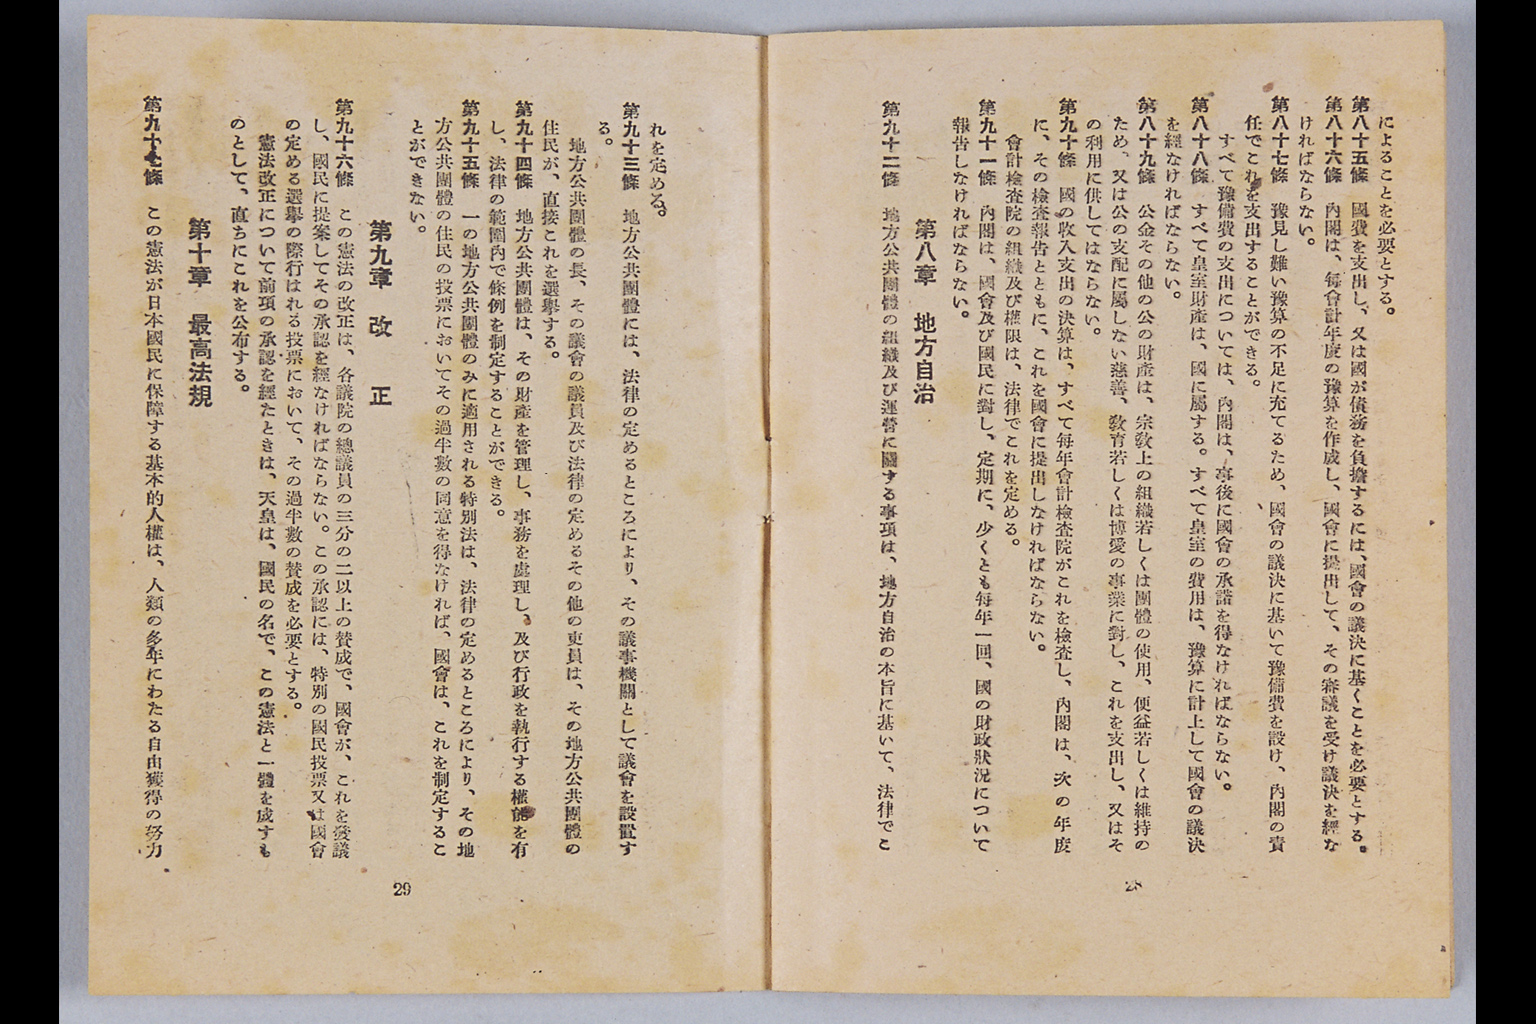 によることを必要とする。
第八十五條　國費を支出し、又は國が債務を負擔するには、國會の議決に基くことを必要とする。
第八十六條　內閣は、每會計年度の豫算を作成し、國會に提出して、その審議を受け議決を經な
ければならない。
第八十七條　豫見し難い豫算の不足に充てるため、國會の議決に基いて豫備費を設け、內閣の責
任でこれを支出することができる。
すべて豫備費の支出については、內閣は、事後に國會の承諾を得なければならない。
第八十八條　すべて皇室財產は、國に屬する。すべて皇室の費用は、豫算に計上して國會の議決
を經なければならない。
第八十九條　公金その他の公の財產は、宗敎上の組織若しくは團體の使用、便益若しくは維持の
ため、又は公の支配に屬しない慈善、敎育若しくは博愛の事業に對し、これを支出し、又はそ
の利用に供してはならない。
第九十條　國の收入支出の決算は、すべて每年會計檢査院がこれを檢査し、內閣は、次の年度
に、その檢査報告とともに、これを國會に提出しなければならない。
會計檢査院の組織及び權限は、法律でこれを定める。
第九十一條　內閣は、國會及び國民に對し、定期に、少くとも每年一回、國の財政狀況について
報告しなければならない。
第八章　地方自治
第九十二條　地方公共團體の組織及び運營に關する事項は、地方自治の本旨に基いて、法律でこ
28
れを定める。
第九十三條　地方公共團體には、法律の定めるところにより、その議事機關として議會を設置す
る。
地方公共團體の長、その議會の議員及び法律の定めるその他の吏員は、その地方公共團體の
住民が、直接これを選擧する。
第九十四條　地方公共團體は、その財產を管理し、事務を處理し、及び行政を執行する權能を有
し、法律の範圍內で條例を制定することができる。
第九十五條　一の地方公共團體のみに適用される特別法は、法律の定めるところにより、その地
方公共團體の住民の投票においてその過半數の同意を得なければ、國會は、これを制定するこ
とができない。
第九章　改　正
第九十六條　この憲法の改正は、各議院の總議員の三分の二以上の賛成で、國會が、これを發議
し、國民に提案してその承認を經なければならない。この承認には、特別の國民投票又は國會
の定める選擧の際行はれる投票において、その過半數の賛成を必要とする。
憲法改正について前項の承認を經たときは、天皇は、國民の名で、この憲法と一體を成すも
のとして、直ちにこれを公布する。
第十章　最高法規
第九十七條　この憲法が日本國民に保障する基本的人權は、人類の多年にわたる自由獲得の努力
29